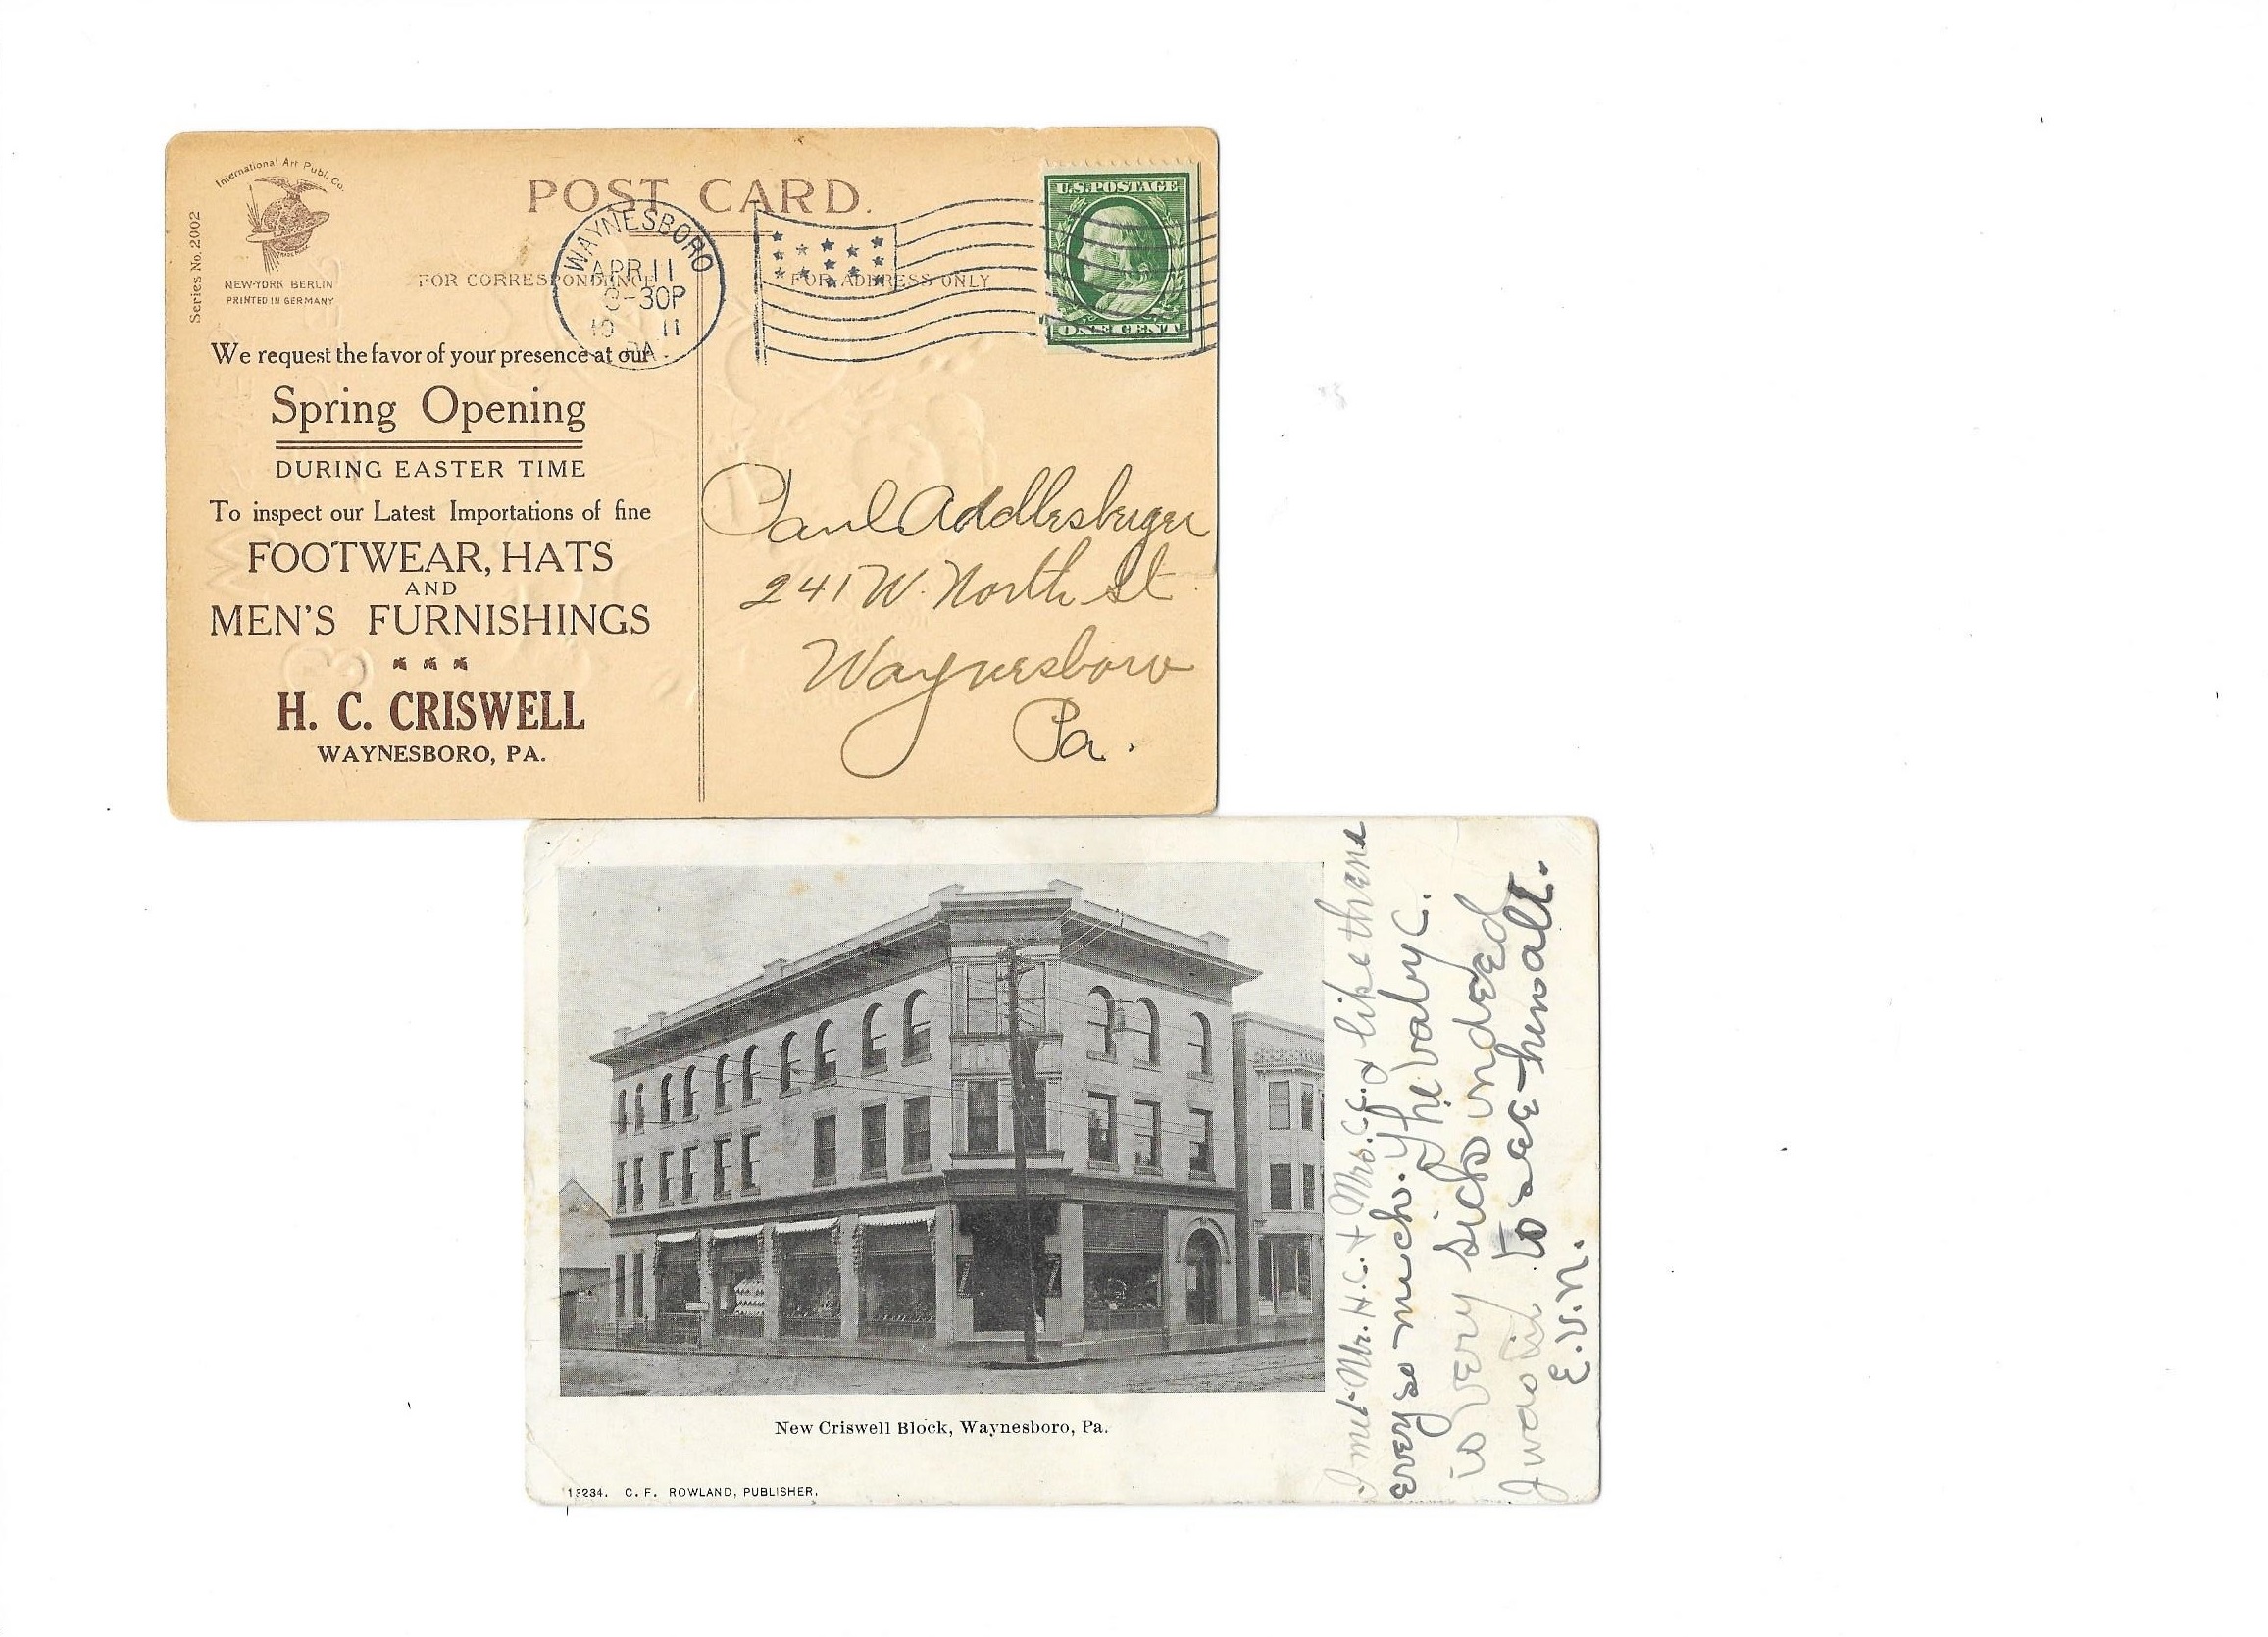 International Art Publ. Co.
Series No. 2002
NEW-YORK BERLIN
PRINTED IN GERMANY
POST CARD.
FOR CORRESPONDENCE
FOR ADDRESS ONLY
WAYNESBORO
APR 11
-30P
11
PA.
U.S. POSTAGE
ONE CENT
We request the favor of your presence at our
Spring Opening
DURING EASTER TIME
To inspect our Latest Importations of fine
FOOTWEAR, HATS
AND
MEN'S FURNISHINGS
H. C. CRISWELL
WAYNESBORO, PA.
Paul Addlesberger
241 W. North St.
Waynesboro
Pa.
New Criswell Block, Waynesboro, Pa.
C. F. ROWLAND, PUBLISHER.
I met Mr. H.C. + Mrs. C.C. & like them
every so much. The baby C.
is very sick indeed
I was to see
E.V.N.